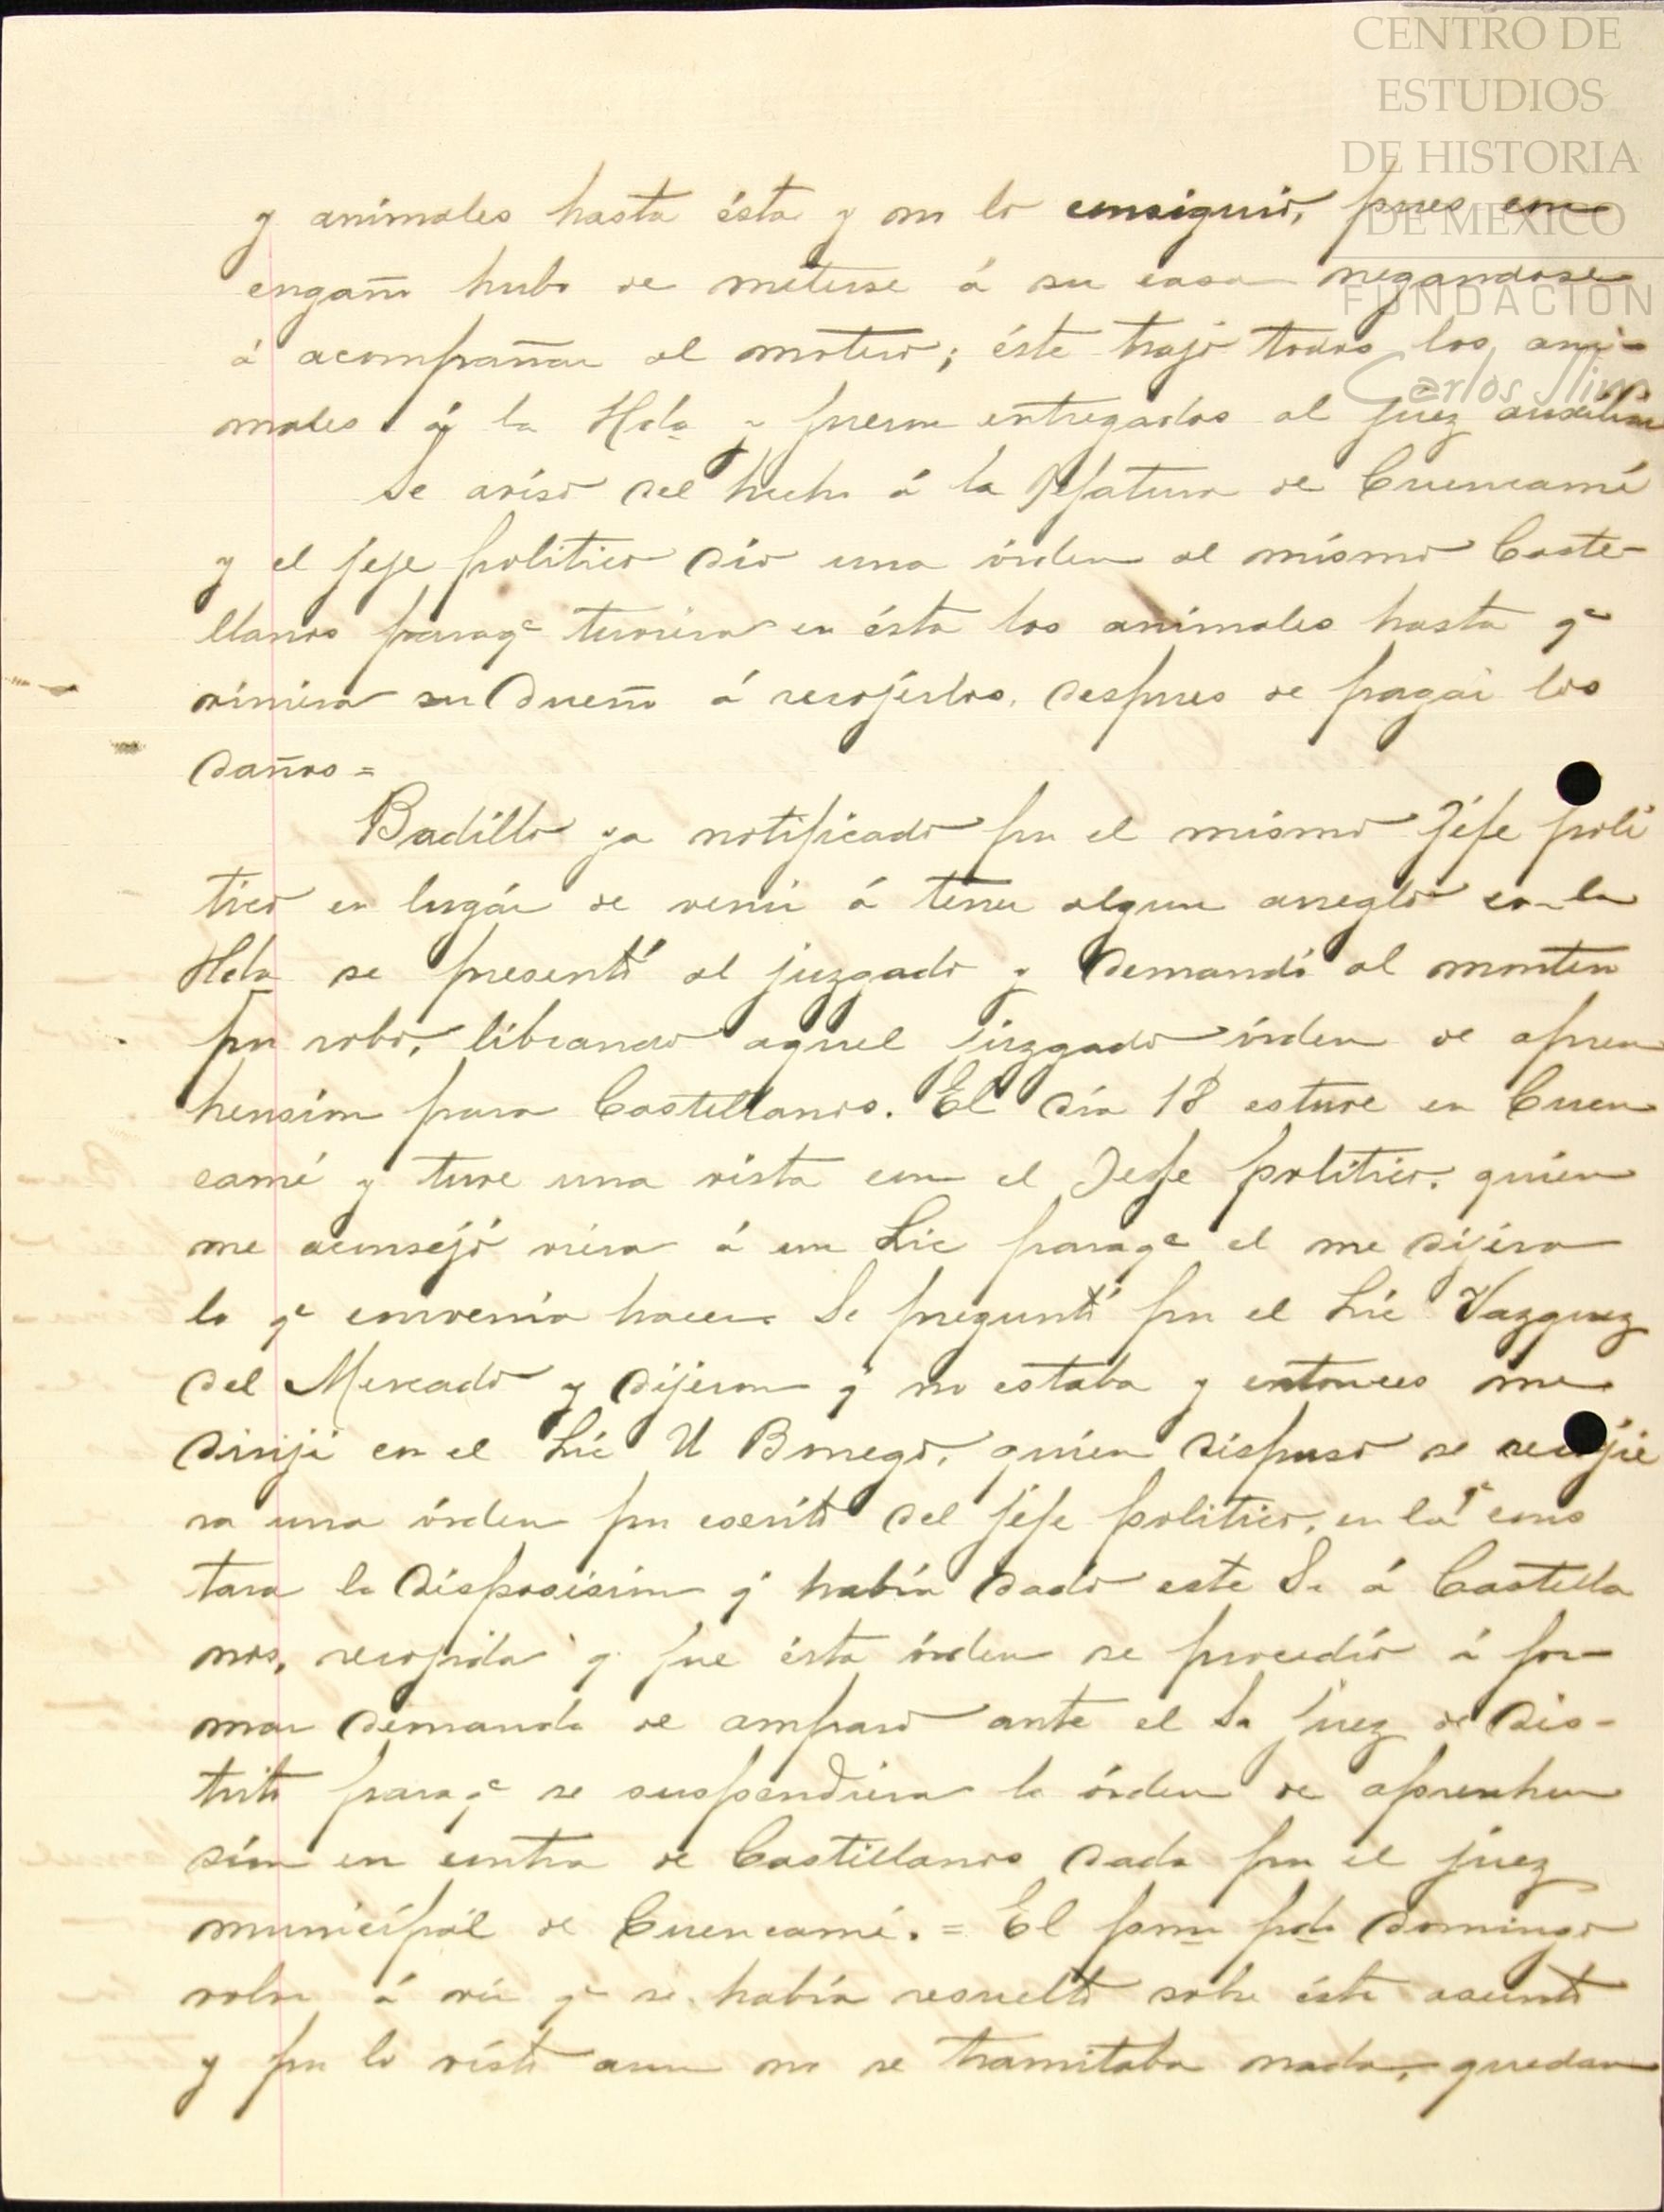 CENTRO DE
ESTUDIOS
DE HISTORIA
DE MEXICO
FUNDACIÓN
Carlos Slim
y animales hasta ésta y no lo consiguió, pues con
engaño hubo de meterse á su casa negandose
á acompañar al motero; éste trajó todos los ani-
males á la Hda y fueron entregados al juez auxiliar
Se avisó del hecho á la Jefatura de Cuencamé
y el jefe politico dió una órden al mismo Caste-
llanos paraqe tuviera en ésta los animales hasta qe
viniera su dueño á recojerlos, despues de pagar los
daños =
Badillo ya notificado por el mismo Jéfe polí
tico en lugár de venir á tener algun arreglo con la
Hda se presentó al juzgado y demandó al montero
por robo, librando aquel juzgado órden de apren
hensión para Castellanos. El día 18 estuve en Cuen
camé y tuve una vista con el Jefe politico, quien
me aconsejó viera á un Lic paraqe el me dijera
lo qe convenía hacer. Se preguntó por el Lic Vazquez
del Mercado y dijeron q no estaba y entonces me
dirijí con el Lic U Borrego, quien dispuso se recojie
ra una órden por escrito del jéfe politico, en la qe cons
tara la disposisión q había dado este Sr á Castella
nos, recojida q fue ésta órden se procedió á for
mar demanda de amparo ante el Sr Juez de Dis-
trito paraqe se suspendiera la órden de aprenhen
sión en contra de Castellanos dada por el juez
municipál de Cuencamé. = El pmo pdo domingo
volví á ver qe se había resuelto sobre éste asunto
y por lo visto aun no se tramitaba nada, quedan